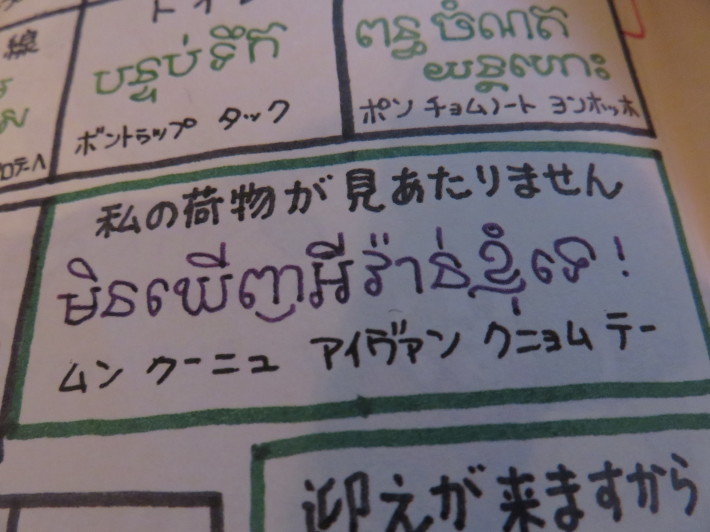 線
トイレ
បន្ទប់ទឹក
ボントゥップ タック
ពន្ធចំណត
យន្តហោះ
ポン チョムノート ヨンホッホ
私の荷物が見あたりません
មិនឃើញអីវ៉ាន់ខ្ញុំទេ!
ムン クーニュ アイヴァン クニョム テー
迎えが来ますから